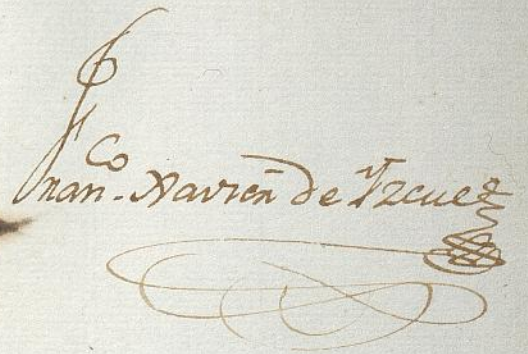 Fran.co Xavier de Yzcue